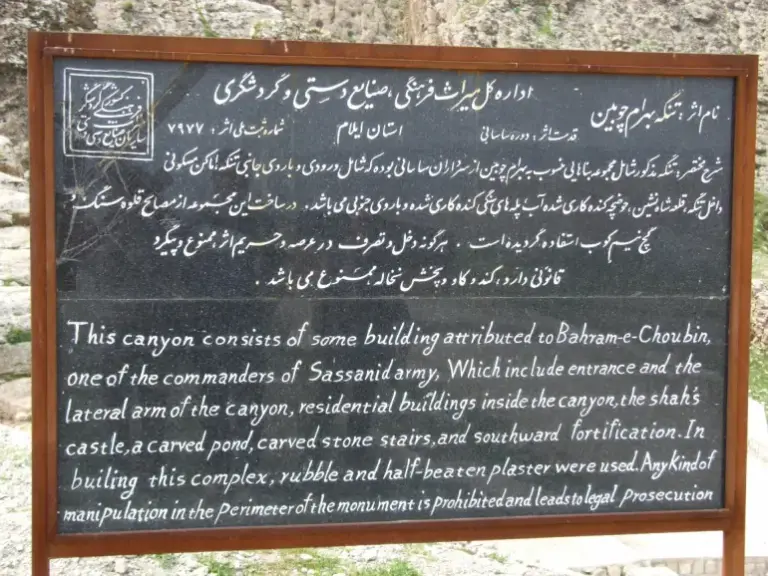 اداره کل میراث فرهنگی، صنایع دستی و گردشگری
نام اثر: تنگه بهرام چوبین
قدمت اثر: دوره ساسانی
استان ایلام
شماره ثبت ملی اثر: ۷۹۷۷
شرح مختصر: تنگه مذکور شامل مجموعه بناهایی منسوب به بهرام چوبین از سرداران ساسانی بوده که شامل ورودی و باروی جانبی تنگه، اماکن مسکونی
داخل تنگه، قلعه شاه نشین، حوضچه کنده کاری شده آب، پله های سنگی کنده کاری شده و باروی جنوبی می باشد. در ساخت این مجموعه از مصالح قلوه سنگ و
گچ نیم کوب استفاده گردیده است. هرگونه دخل و تصرف در عرصه و حریم اثر، ممنوع و پیگرد
قانونی دارد، کند و کاو و پخش نخاله، ممنوع می باشد.
This canyon consists of some building attributed to Bahram-e-Choubin,
one of the commanders of Sassanid army, Which include entrance and the
lateral arm of the canyon, residential buildings inside the canyon, the shah's
castle, a carved pond, carved stone stairs, and southward fortification. In
builing this complex, rubble and half-beaten plaster were used. Any Kind of
manipulation in the perimeter of the monument is prohibited and leads to legal prosecution